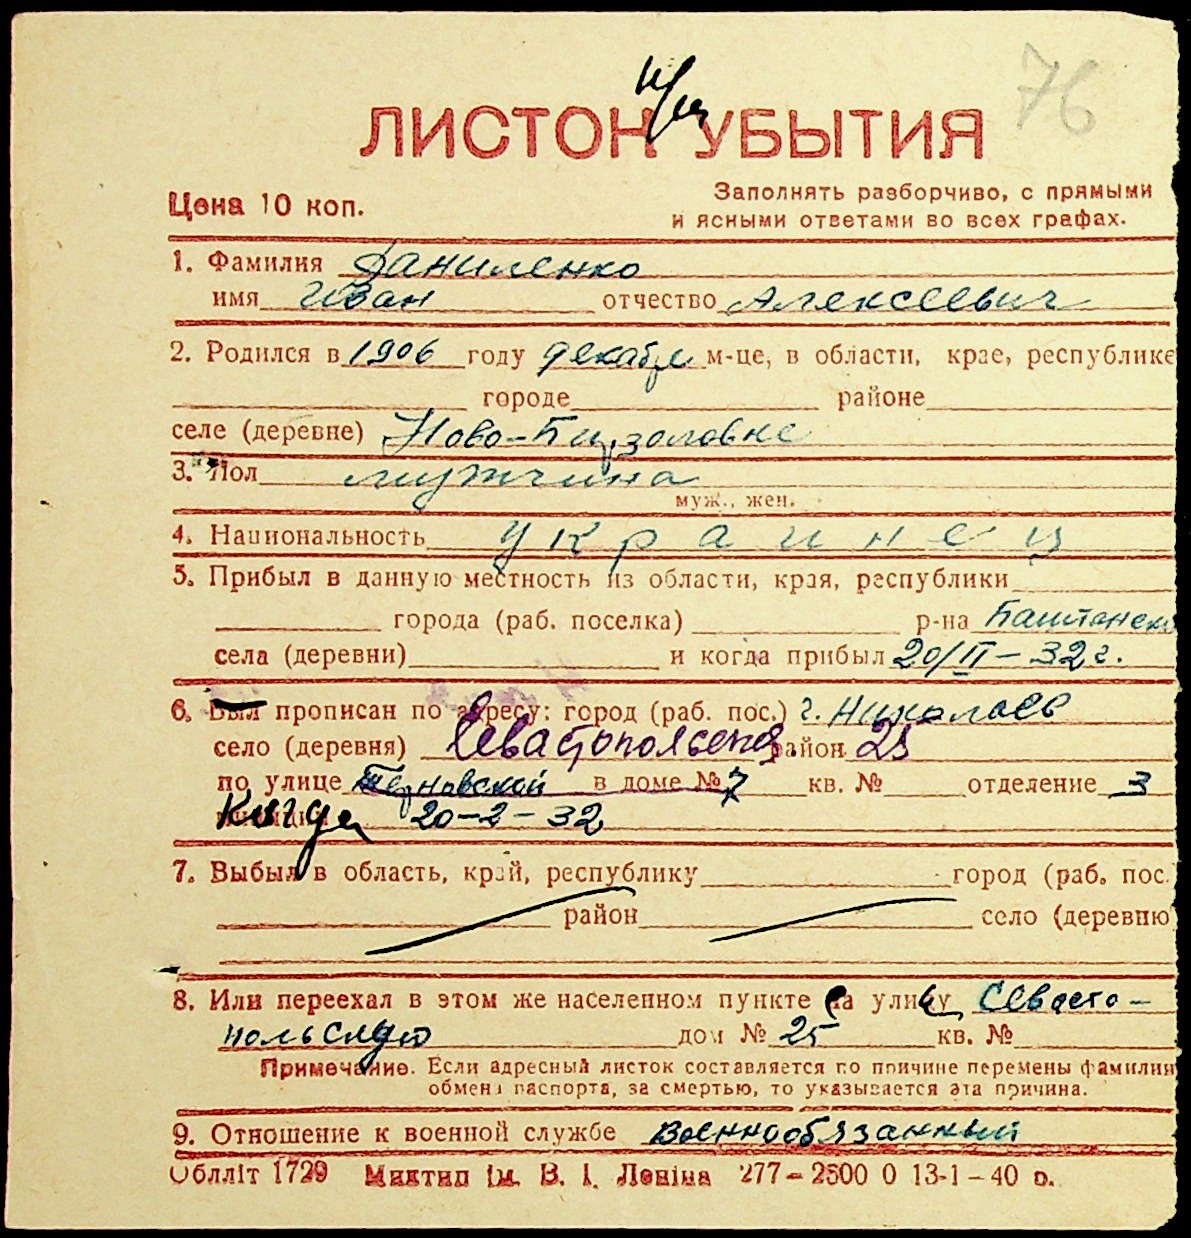 76
ЛИСТОК УБЫТИЯ
Цена 10 коп.
Заполнять разборчиво, с прямыми
и ясными ответами во всех графах.
1. Фамилия Даниленко
имя Иван отчество Алексеевич
2. Родился в 1906 году декабре м-це, в области, крае, республике
городе районе
селе (деревне) Ново-
3. Пол мужчина
муж., жен.
4. Национальность украинец
5. Прибыл в данную местность из области, края, республики
города (раб. поселка) р-на Баштанско
села (деревни) и когда прибыл 20/II-32 г.
6. Был прописан по адресу: город (раб. пос.) г. Николаев
село (деревня) Севастопольская район 25
по улице Терновской в доме № 7 кв. № отделение 3
20-2-32
7. Выбыл в область, край, республику город (раб. пос.
район село (деревню
8. Или переехал в этом же населенном пункте на улицу Севасто-
польскую дом № 25 кв. №
Примечание. Если адресный листок составляется по причине перемены фамилии
обмена паспорта, за смертью, то указывается эта причина.
9. Отношение к военной службе Военнообязанный
Облліт 1729 Миктип ім. В. І. Леніна 277-2500 0 13-1-40 р.